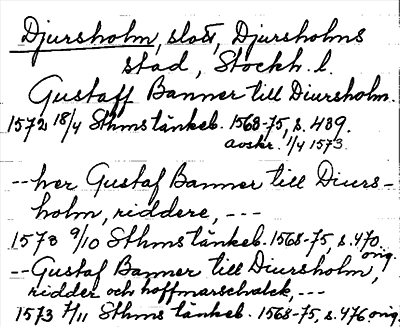 Djursholm, slott, Djursholms
stad, Stockh. l.
Gustaff Banner till Diursholm.
1572 18/4 Sthms tänkeb. 1568-75, s. 489.
avskr. 1/4 1573.
--her Gustaf Banner till Diurs-
holm, riddere, ---
1573 9/10 Sthms tänkeb. 1568-75, s. 470
orig.
--Gustaf Banner till Diursholm,
ridder och hoffmarschalck, ---
1573 7/11 Sthms tänkeb. 1568-75, s. 476 orig.